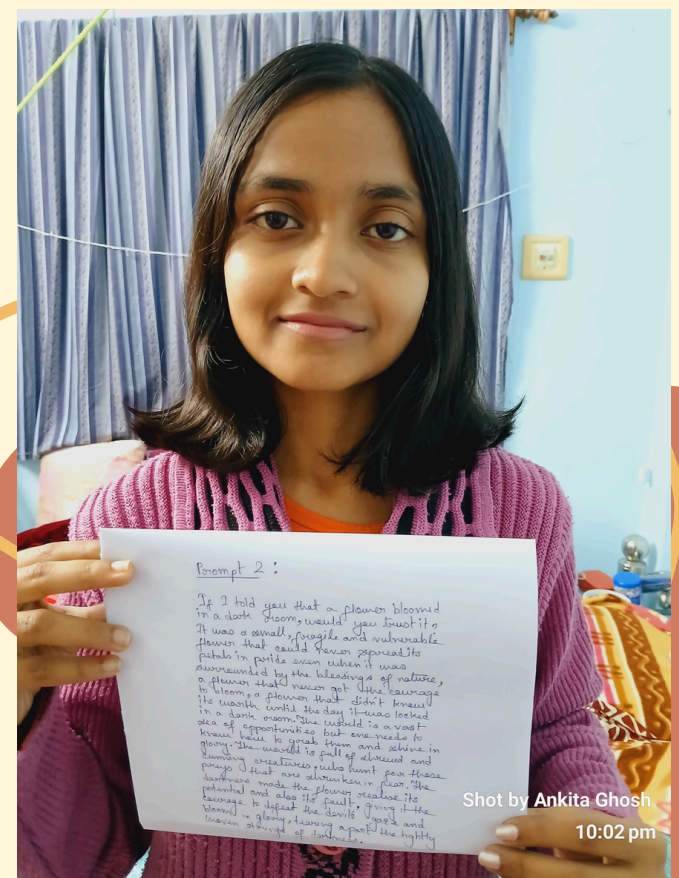 Prompt 2 :
If I told you that a flower bloomed
in a dark room, would you trust it?
It was a small, fragile and vulnerable
flower that could never spread its
petals in pride even when it was
surrounded by the blessings of nature,
a flower that never got the courage
to bloom, a flower that didn't know
its worth until the day it was locked
in a dark room. The world is a vast
sea of opportunities but one needs to
know how to grab them and shine in
glory. The world is full of shrewd and
cunning creatures, who hunt for those
preys that are shrunken in fear. The
darkness made the flower realise its
potential and also its fault, giving it the
courage to defeat the devil's gaze and
bloom in glory, tearing apart the tightly
woven strings of darkness.
Shot by Ankita Ghosh
10:02 pm